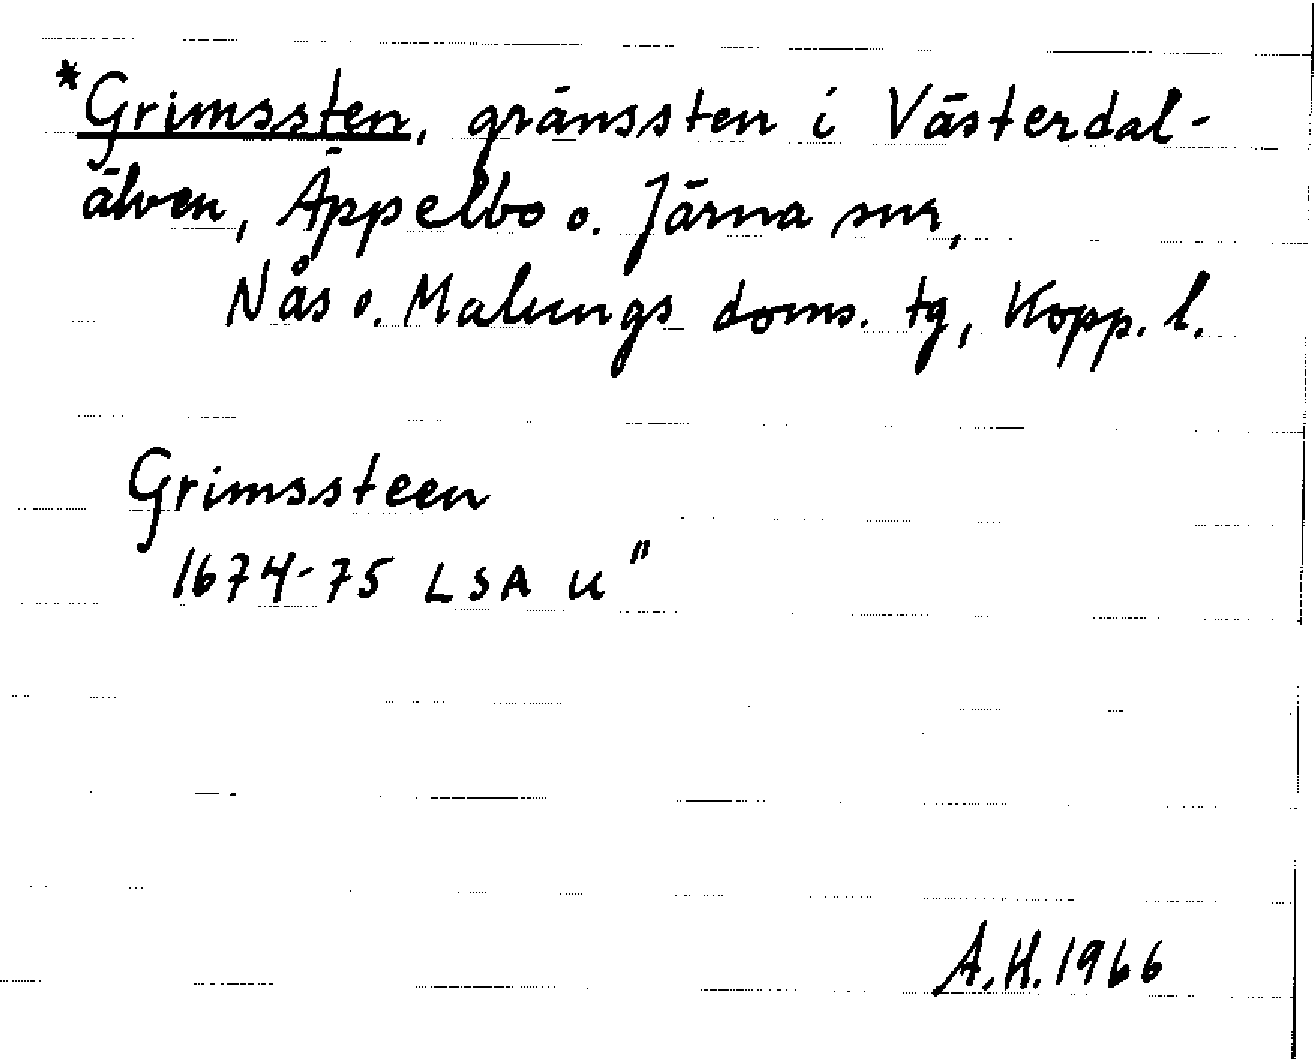 *Grimssten, gränssten i Västerdal-
älven, Äppelbo o. Järna snr,
Nås o. Malungs doms. tg, Kopp. l.
Grimssteen
1674-75 LSA u"
A.H. 1966